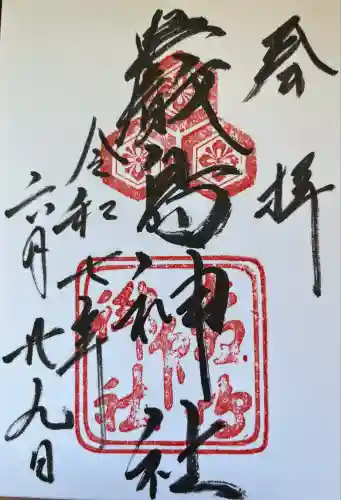 奉拝
厳島神社
令和七年
六月廿九日
厳島
神社